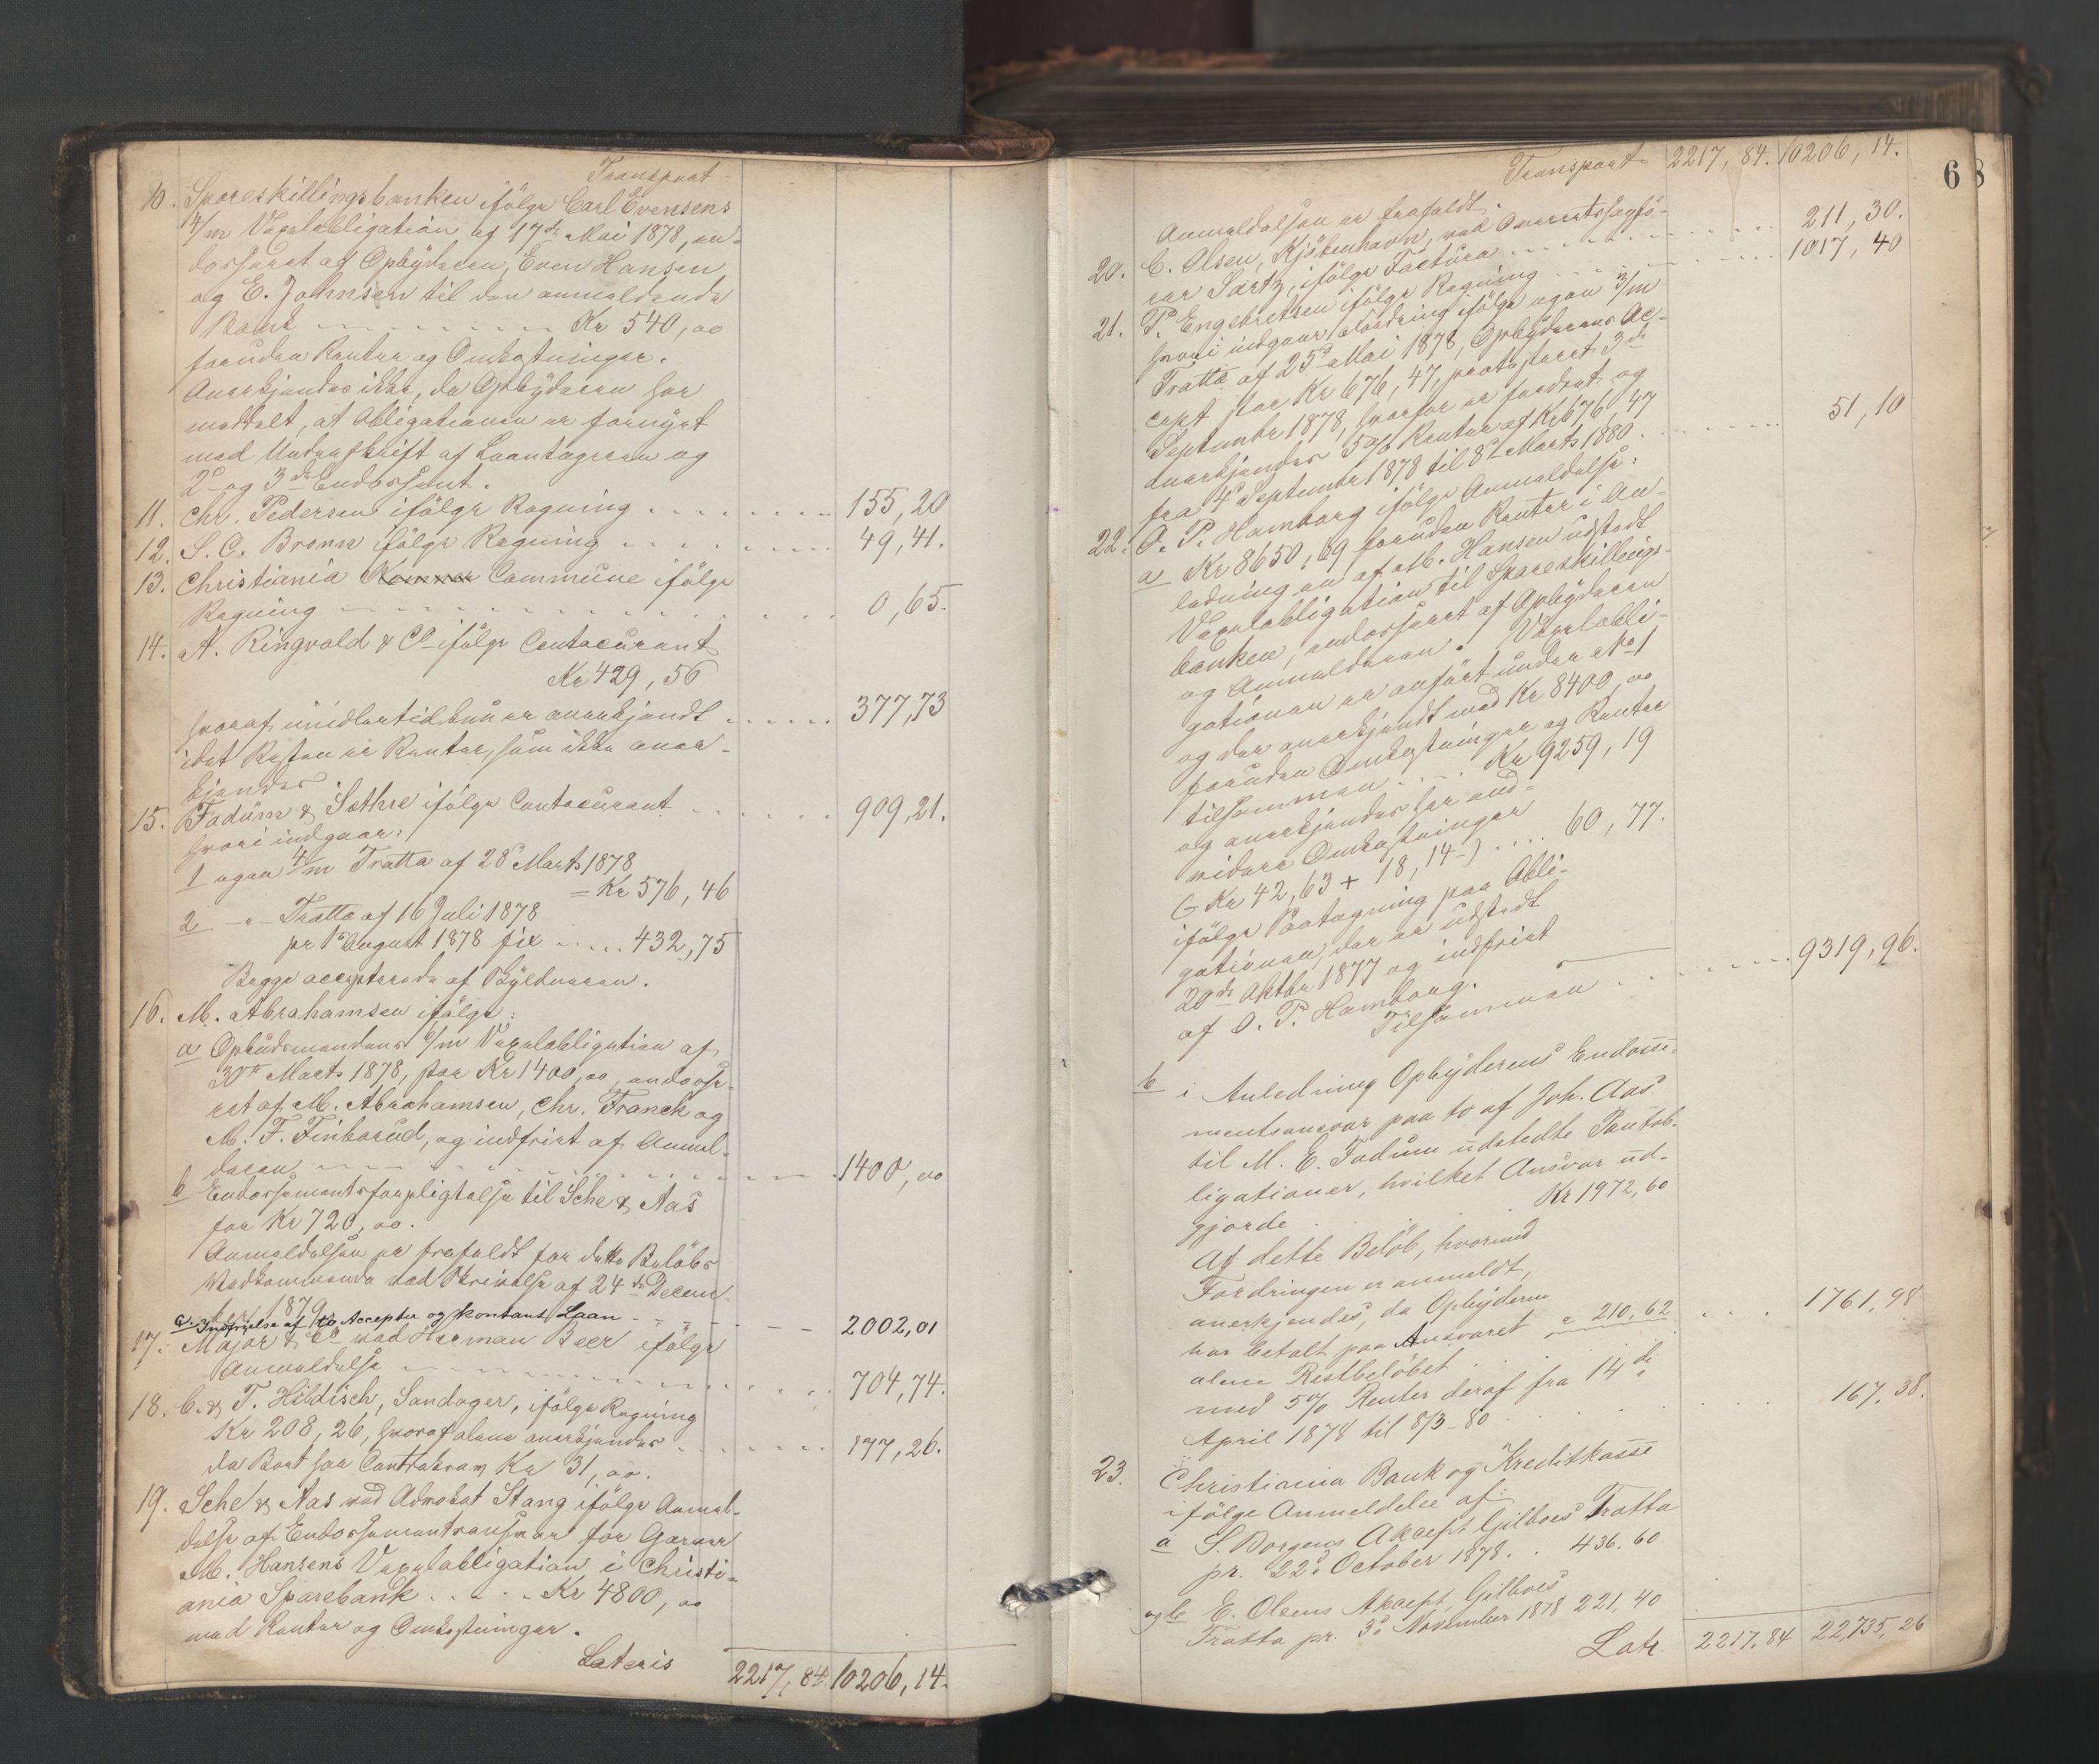 Transport
10. Spareskillingsbanken ifölge Carl Evensens
4/m Vexelobligation af 17de Mai 1878, en-
dosseret af Opbyderen, Even Hansen
og E. Johnsen til den anmeldende
Bank Kr 540,00
foruden Renter og Omkostninger.
Anerkjendes ikke, da Opbyderen har
meddelt, at Obligationen er fornyet
med Underskrift af Laantageren og
2den og 3die Endossent.
11. Chr. Pedersen ifölge Regning 155,20
12. S. C. Bronn ifölge Regning 49,41.
13. Christiania Commune ifölge
Regning 0,65.
14. A. Ringvold & Co ifölge Contocurant
Kr 429,56
hvoraf imidlertid kun er anerkjendt 377,73
idet Resten er Renter, som ikke aner-
kjendes
15. Fadum & Sæthre ifölge Contocurant 909,21.
hvori indgaar:
1 egen 4/m Tratta af 28de Marts 1878
= Kr 576,46
2 -"- Tratta af 16 Juli 1878
pr 1e August 1878 fix 432,75
Begge accepterede af Skyldneren.
16. M. Abrahamsen ifölge:
a Opbudsmandens 6/m Vexelobligation af
30te Marts 1878, stor Kr 1400,00, endosse-
ret af M. Abrahamsen, Chr. Franck og
M. F. Finborud, og indfriet af Anmel-
deren 1400,00
b Endossementsforpligtelse til Sche & Aas
for Kr 720,00.
Anmeldelsen er frafaldt for dette Beløbs
Vedkommende ved Skrivelse af 24de Decem-
ber 1879
c. Indfrielse af to Accepter og kontant Laan 2002,01
17. Major & Co ved Herman Beer ifölge
Anmeldelse 704,74.
18. C. & T. Hildisch, Sandager, ifölge Regning
Kr 208,26, hvoraf alene anerkjendes 177,26.
da Bort gaar Contrakram Kr 31,00.
19. Sche & Aas ved Advokat Stang ifölge Anmel-
delse af Endossementsansvar for Garver
M. Hansens Vexelobligation i Christi-
ania Sparebank Kr 4800,00
med Renter og Omkostninger.
Lateris 2217,84 10206,14.
68
Transport 2217,84. 10206,14.
Anmeldelsen er frafaldt.
20. C. Olsen, Kjöbenhavn, ved Overretssagfö-
rer Sartz, ifölge Factura 211,30.
21. P. Engebretsen ifölge Regning 1017,40
hvori indgaar Fordring ifölge egen 3/m
Tratta af 25de Mai 1878, Opbyderens Ac-
cept stor Kr 676,47, protesteret 3de
September 1878, hvorfor er fordret og
anerkjendes 5% Renter af Kr 676,47
fra 4de September 1878 til 8de Marts 1880 51,10
22. O. P. Hamborg ifölge Anmeldelse:
a Kr 8650,69 foruden Renter i An-
ledning en af M. Hansen udstedt
Vexelobligation til Spareskillings-
banken, endosseret af Opbyderen
og Anmelderen. Vexelobli-
gationen er anført under No 1
og der anerkjendt med Kr 8400,00
foruden Omkostninger og Renter
tilsammen Kr 9259,19
og anerkjendes her end-
videre Omkostninger
(= Kr 42,63 + 18,14-) 60,77.
ifölge Paategning paa Obli-
gationen, der er udstedt
29de Oktbr 1877 og indfriet
af O. P. Hamborg.
Tilsammen 9319,96.
b i Anledning Opbyderens Endosse-
mentsansvar paa to af Joh. Aas
til M. E. Fadum udstedte Pantob-
ligationer, hvilket Ansvar ud-
gjorde Kr 1972,60
Af dette Belöb, hvormed
Fordringen er anmeldt,
anerkjendes, da Opbyderen
har betalt paa Ansvaret " 210,62
alene Restbelöbet 1761,98
med 5% Renter deraf fra 14de
April 1878 til 8/3-80 167,38.
23. Christiania Bank og Kreditkasse
ifölge Anmeldelse af:
a S. Borgens Akcept Gilboes Tratta
pr. 22de October 1878. 436.60
og b E. Olsens Akcept, Gilboes
Tratta pr. 3de November 1878 221,40
Latr. 2217.84 22,735,26